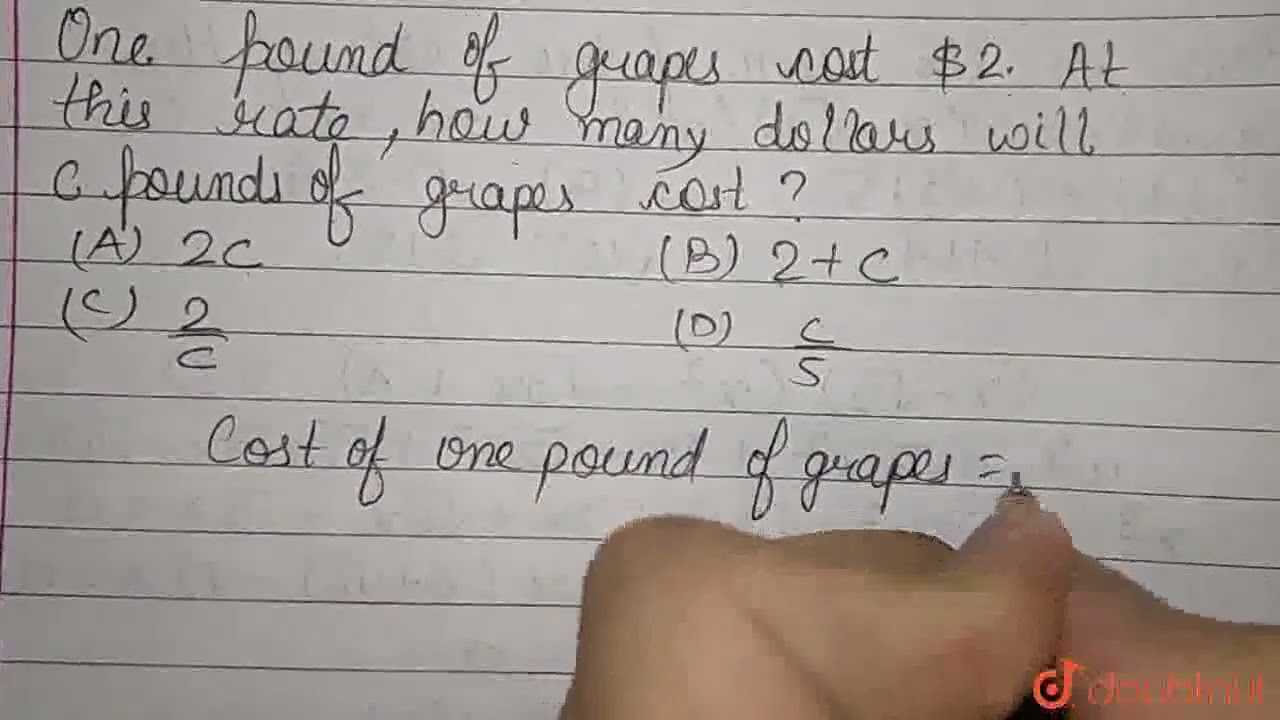 One pound of grapes cost $2. At
this rate, how many dollars will
c pounds of grapes cost ?
(A) 2c (B) 2 + c
(C) 2/c (D) c/5
Cost of one pound of grapes =
doubtnut